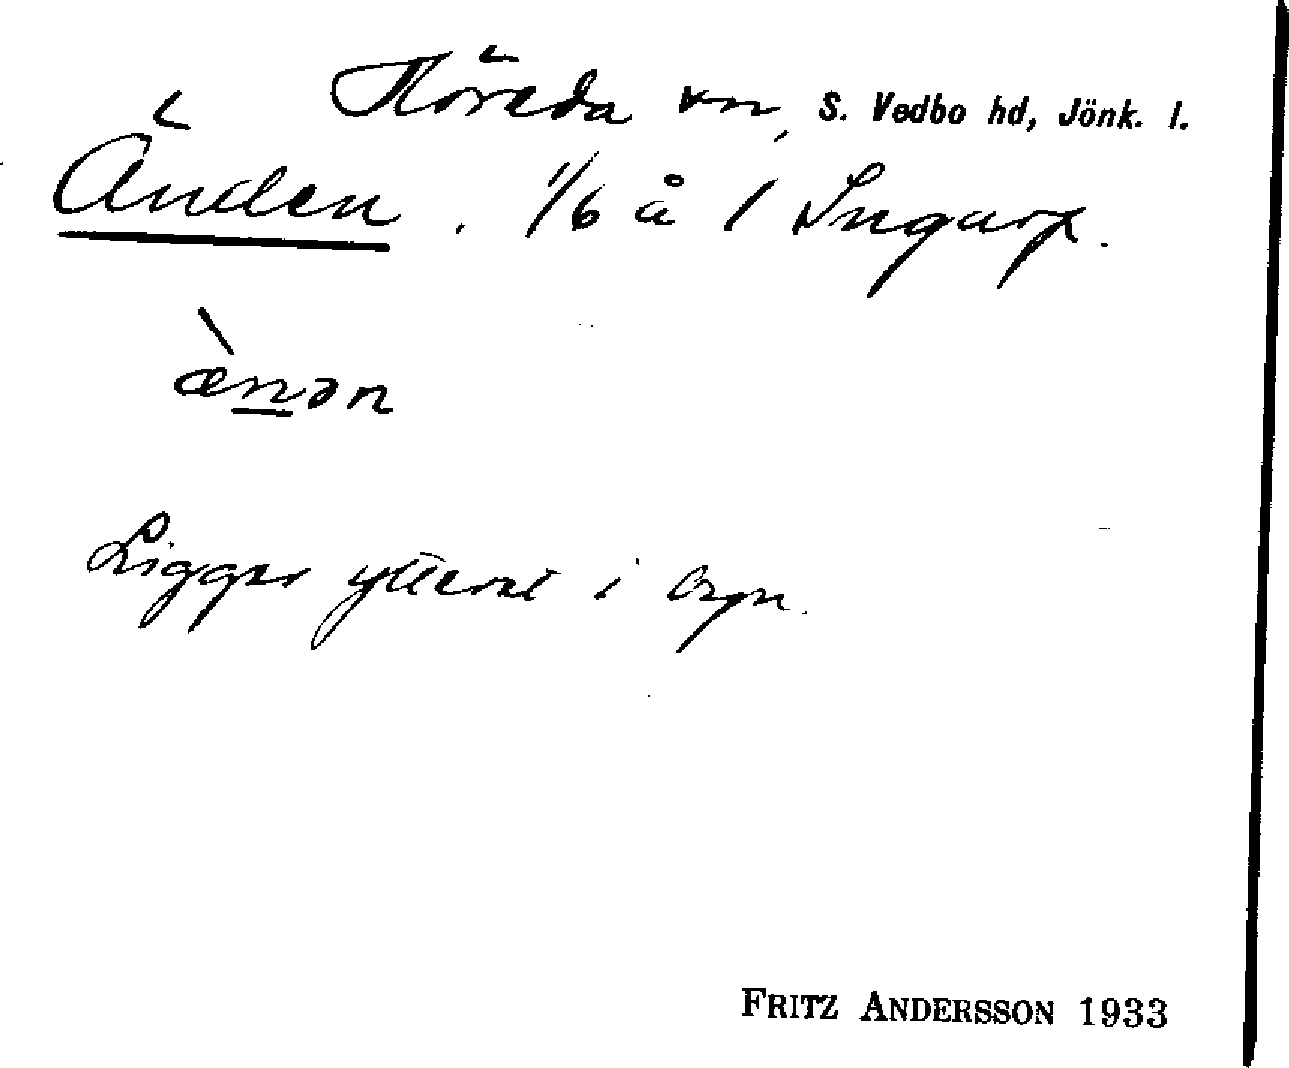 Höreda sn, S. Vedbo hd, Jönk. l.
Änden. 1/6 å 1 Ingarp.
ænən
Ligger ytterst i byn.
FRITZ ANDERSSON 1933